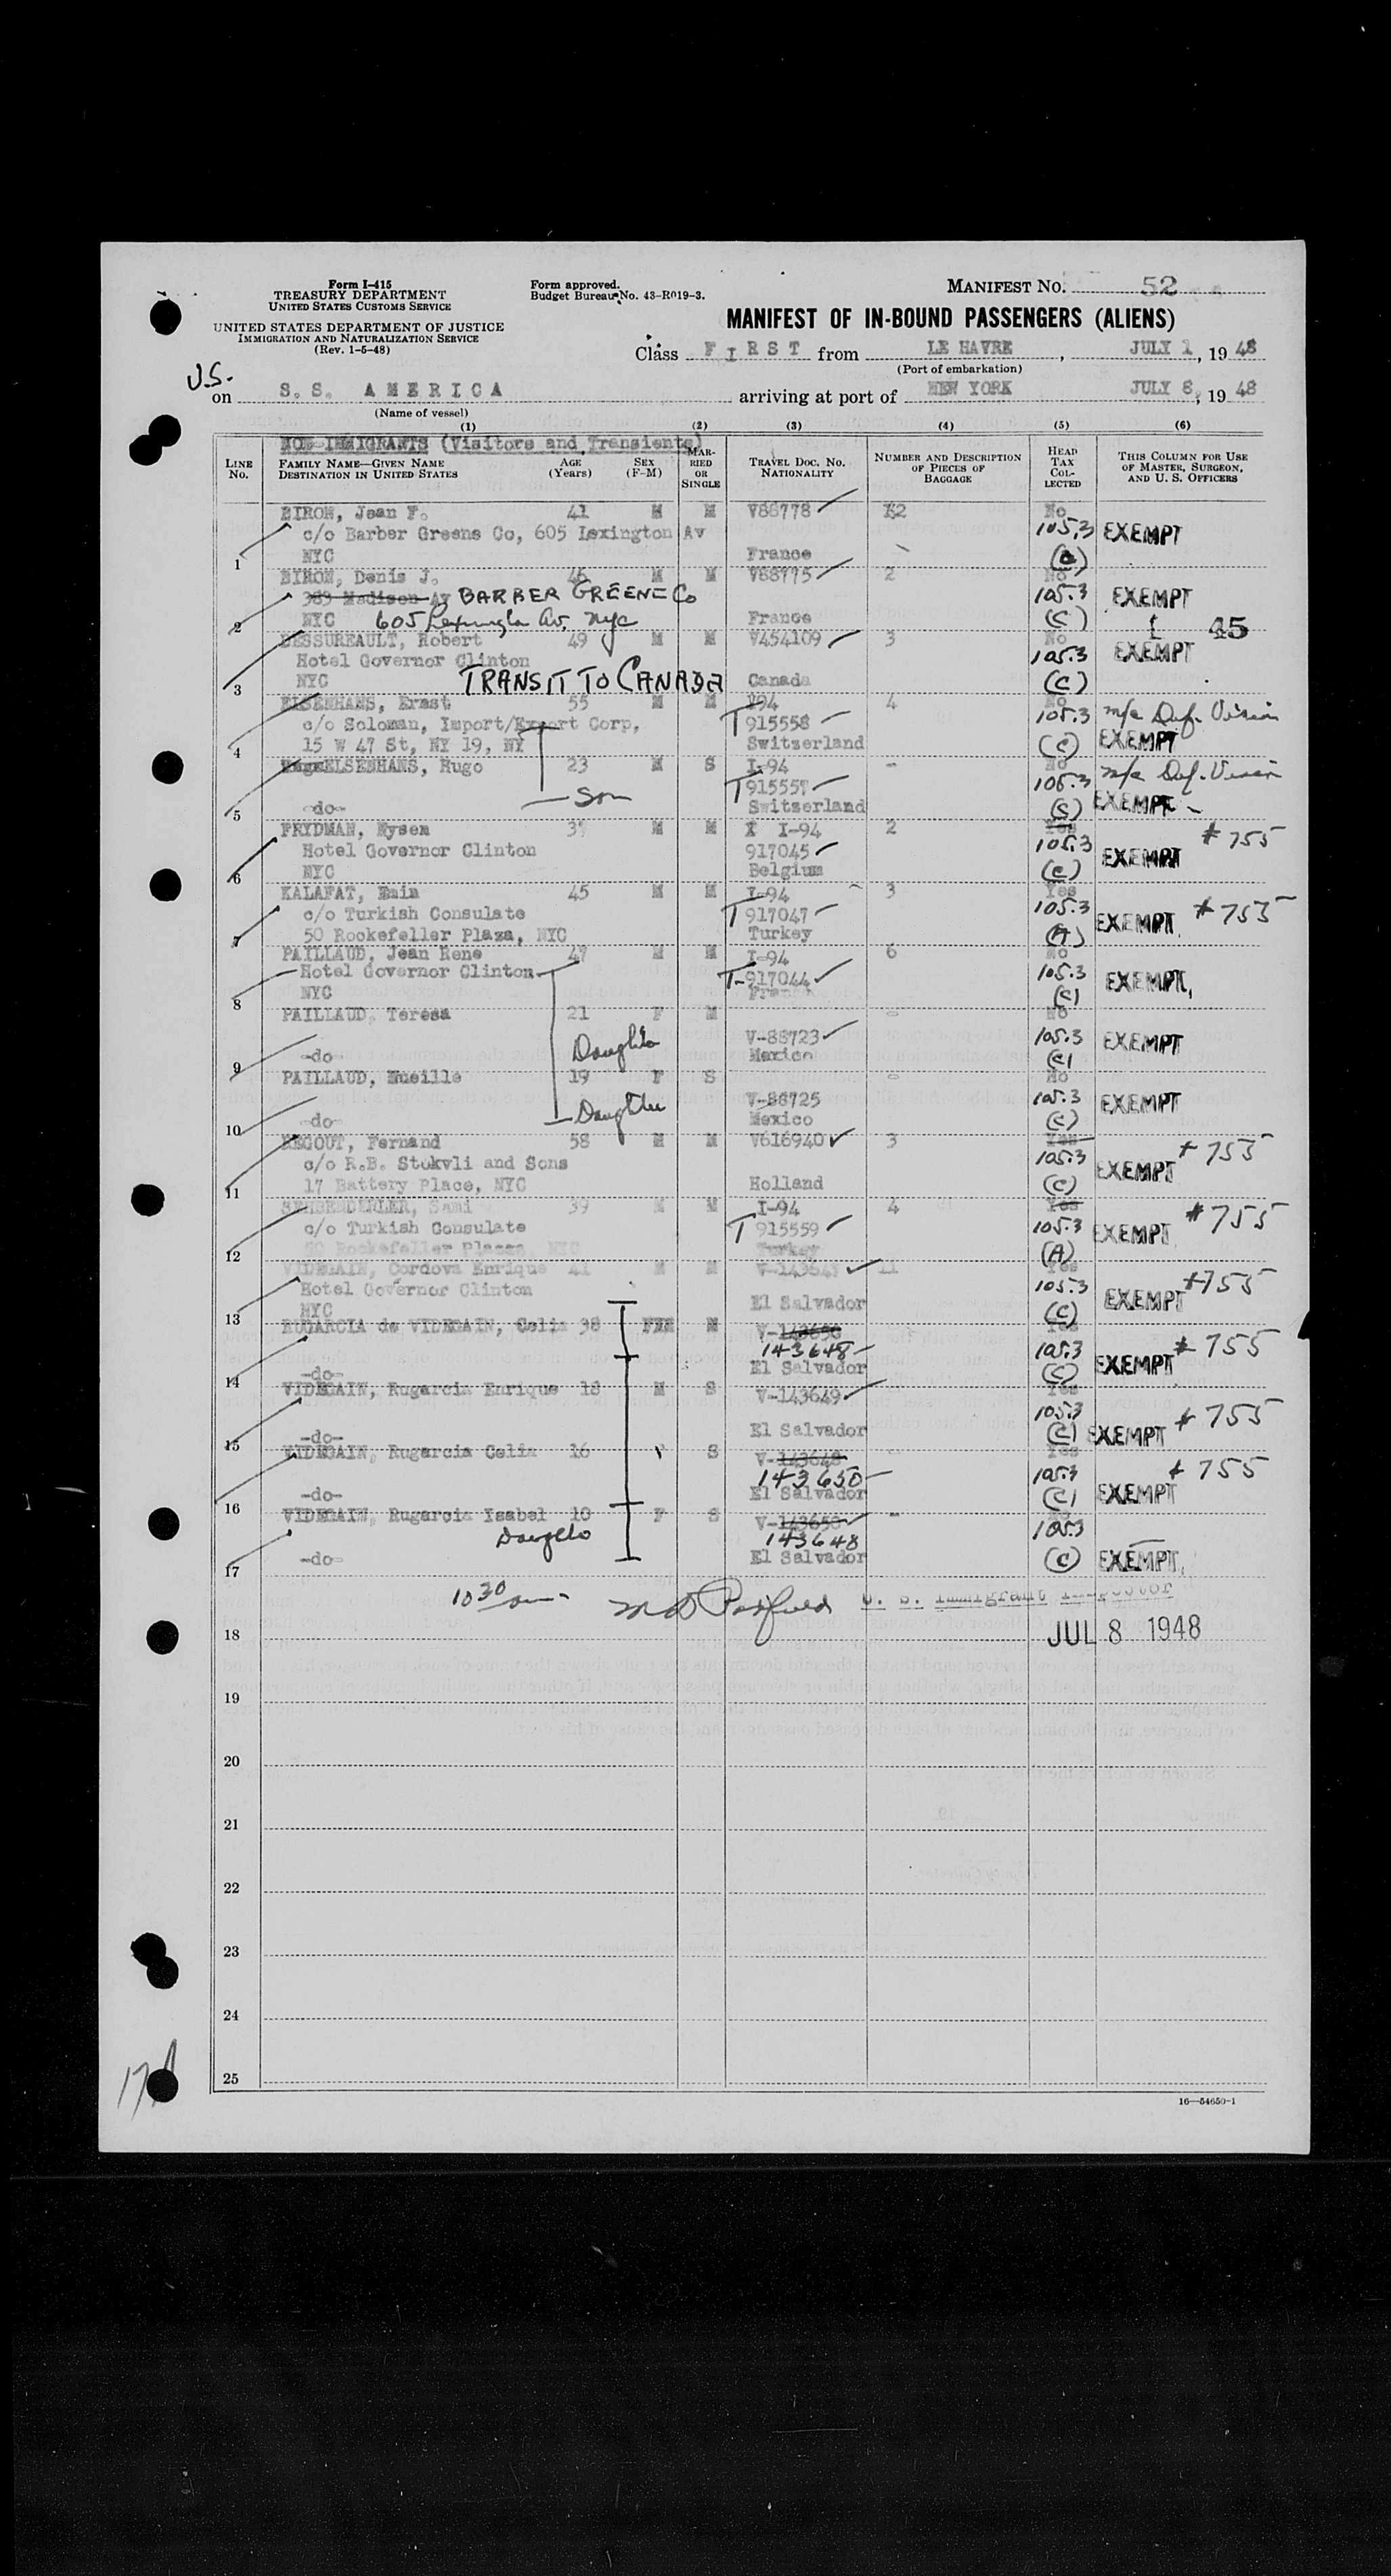 Form I-415
TREASURY DEPARTMENT
UNITED STATES CUSTOMS SERVICE
UNITED STATES DEPARTMENT OF JUSTICE
IMMIGRATION AND NATURALIZATION SERVICE
(Rev. 1-5-48)
Form approved.
Budget Bureau No. 43-R019-3.
MANIFEST NO. 52
MANIFEST OF IN-BOUND PASSENGERS (ALIENS)
Class FIRST from LE HAVRE, JULY 1, 1948
(Port of embarkation)
U.S.
on S.S. AMERICA arriving at port of NEW YORK JULY 8, 1948
(Name of vessel)
(1) (2) (3) (4) (5) (6)
NON-IMMIGRANTS (Visitors and Transients)
LINE No.
FAMILY NAME—GIVEN NAME
DESTINATION IN UNITED STATES
AGE (Years)
SEX (F-M)
MARRIED OR SINGLE
TRAVEL DOC. NO.
NATIONALITY
NUMBER AND DESCRIPTION OF PIECES OF BAGGAGE
HEAD TAX COLLECTED
THIS COLUMN FOR USE OF MASTER, SURGEON, AND U. S. OFFICERS
BIRON, Jean F. 41 M M V88778 No
c/o Barber Greene Co, 605 Lexington Av 105.3 EXEMPT
1 NYC France
BIRON, Denis J. 46 M M V88775 2 No
383 Madison Av BARBER GREENE Co 105.3 EXEMPT
2 NYC 605 Lexington Av. NYC France (C)
45
DESSUREAULT, Robert 49 M M V454109 3 No
Hotel Governor Clinton 105.3 EXEMPT
3 NYC TRANSIT TO CANADA Canada (C)
ELSENHANS, Ernst 55 M M 4 No
c/o Soloman, Import/Export Corp, T 915558 105.3
4 15 W 47 St, NY 19, NY Switzerland (C) EXEMPT
ELSENHANS, Hugo 23 M S I-94 - No
T 915557 105.3
5 -do- Son Switzerland EXEMPT
FRYDMAN, Nysen M M I-94 2 Yes # 755
Hotel Governor Clinton 917045 105.3
6 NYC Belgium (C) EXEMPT
KALAFAT, Emin 45 M M I-94 3 Yes
c/o Turkish Consulate T 917047 105.3 EXEMPT # 755
7 50 Rockefeller Plaza, NYC Turkey (A)
PAILLAUD, Jean Rene 47 M M I-94 6 No
Hotel Governor Clinton T-917044 105.3 EXEMPT
8 NYC France (C)
PAILLAUD, Teresa 21 F M - No
Daughter V-88723 105.3 EXEMPT
9 -do- Mexico (C)
PAILLAUD, 19 F S - No
V-88725 105.3 EXEMPT
10 -do- Daughter Mexico (C)
REGOUT, Fernand 58 M M V616940 3 Yes # 755
c/o R.B. Stokvli and Sons 105.3 EXEMPT
11 17 Battery Place, NYC Holland (C)
Sami 39 M M I-94 4 Yes # 755
c/o Turkish Consulate T 915559 105.3 EXEMPT
12 50 Rockefeller Plaza, NYC Turkey (A)
VIDEGAIN, Cordova Enrique 41 M M 11 Yes
Hotel Governor Clinton 105.3 # 755
13 NYC El Salvador (C) EXEMPT
RUGARCIA de VIDEGAIN, Celia 38 M V-143650 Yes
143648 105.3 # 755
14 -do- El Salvador (C) EXEMPT
VIDEGAIN, Rugarcia Enrique 18 M S V-143649 Yes
105.3 # 755
15 -do- El Salvador (C) EXEMPT
VIDEGAIN, Rugarcia Celia 16 S V-143648 - Yes
143650 105.3 # 755
16 -do- El Salvador (C) EXEMPT
VIDEGAIN, Rugarcia Ysabel 10 F S V-143650 -
Daughter 143648 105.3
17 -do- El Salvador (C) EXEMPT
10 30 am U. S. Immigrant Inspector
18 JUL 8 1948
19
20
21
22
23
24
25
16—54650-1